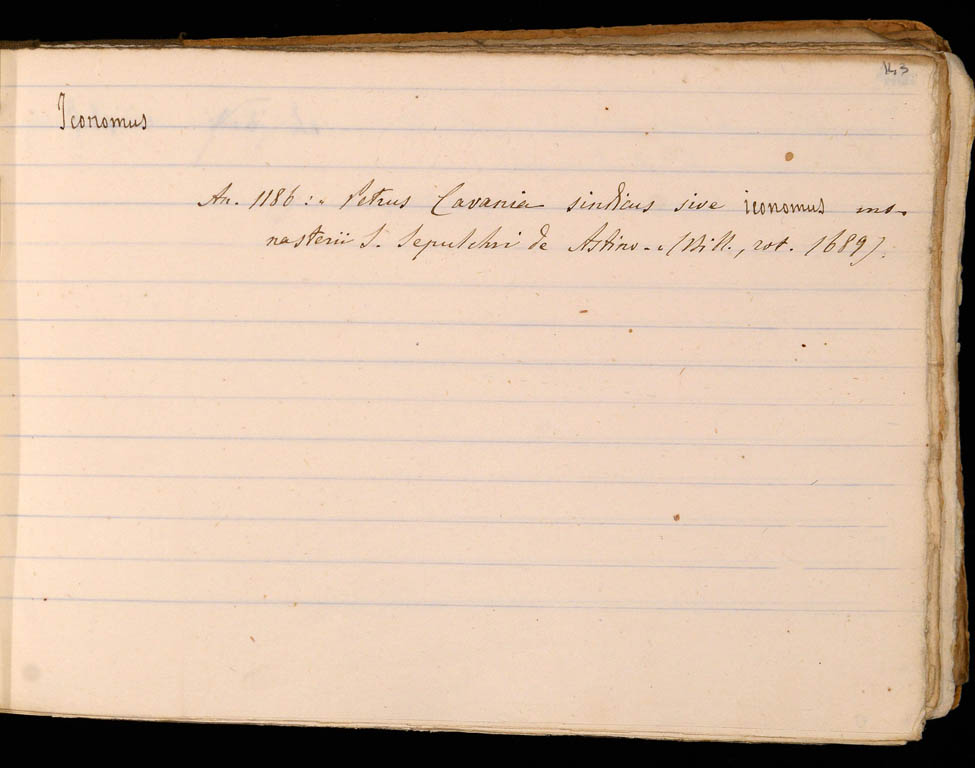 143
Iconomus
An. 1186 : „ Petrus Cavania sindicus sive iconomus mo-
nasterii S. Sepulchri de Astino „ (Bibl., rot. 1689).